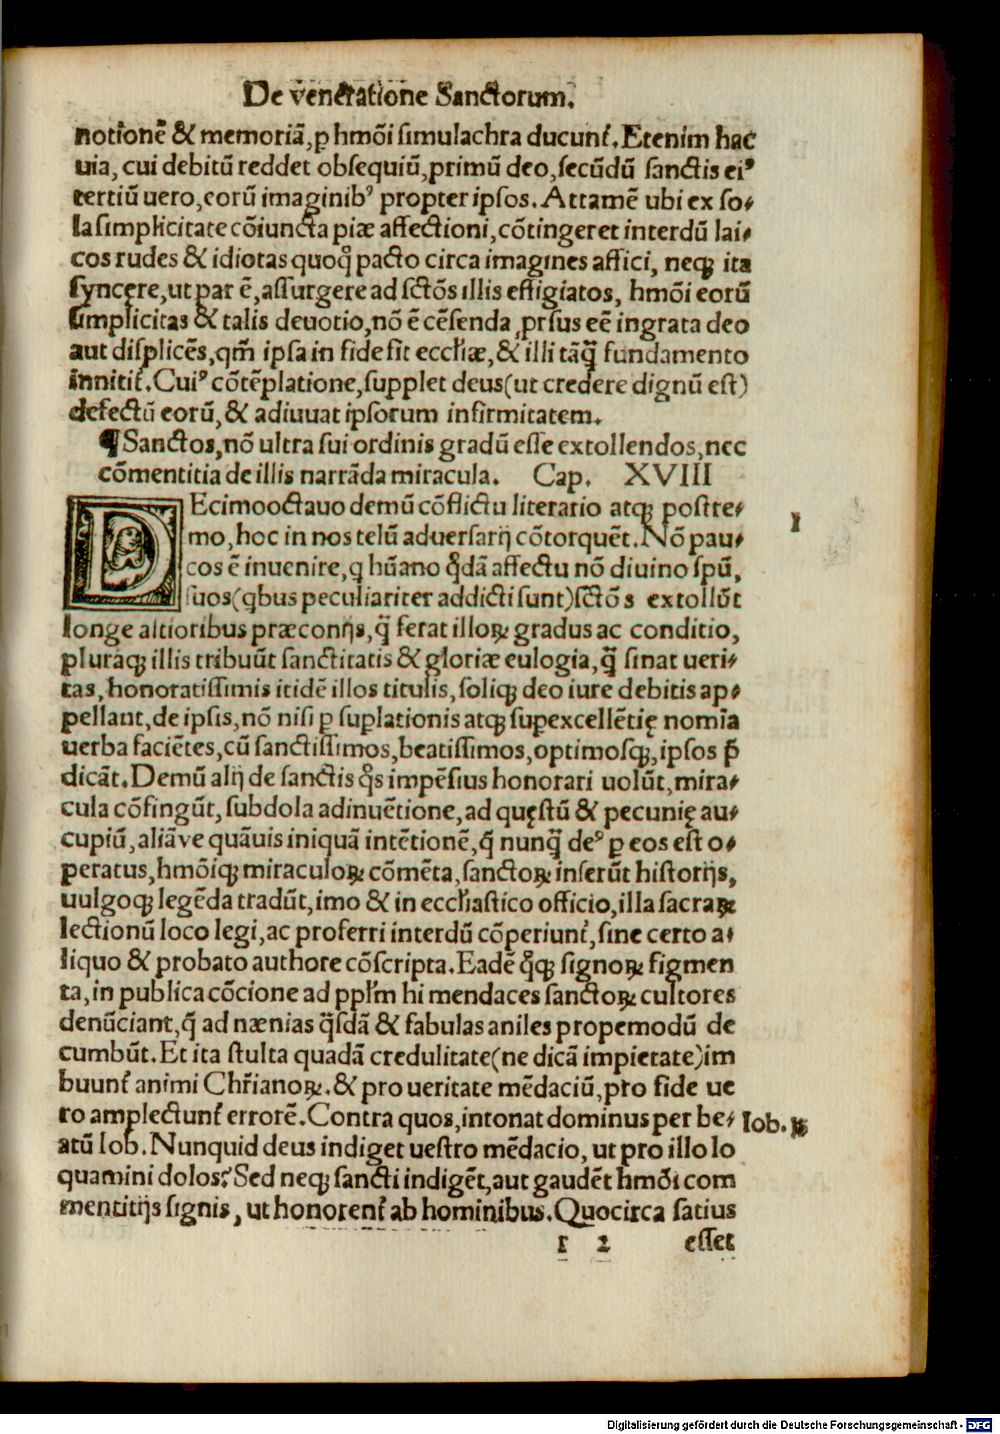 De vēneratione Sanctorum.
notionē & memoriā, ꝑ hmōi simulachra ducunt̃. Etenim hac
uia, cui debitū reddet obsequiū, primū deo, secūdū sanctis eiꝰ
tertiū uero, eorū imaginibꝰ propter ipsos. Attamē ubi ex so-
la simplicitate cōiuncta piæ affectioni, cōtingeret interdū lai-
cos rudes & idiotas quoq̃ pacto circa imagines affici, neqꝫ ita
syncere, ut par ē, assurgere ad sctōs illis effigiatos, hmōi eorū
simplicitas & talis deuotio, nō ē cēsenda ꝓrsus eē ingrata deo
aut displicēs, qm̃ ipsa in fide sit eccl̃iæ, & illi tāq̃ fundamento
innitit̃. Cuiꝰ cōtēplatione, supplet deus (ut credere dignū est)
defectū eorū, & adiuuat ipsorum infirmitatem.
¶ Sanctos, nō ultra sui ordinis gradū esse extollendos, nec
cōmentitia de illis narrāda miracula. Cap. XVIII
DEcimooctauo demū cōflictu literario atqꝫ postre-
mo, hoc in nos telū aduersarij cōtorquēt. Nō pau-
cos ē inuenire, q hūano q̃dā affectu nō diuino spū,
suos (qbus peculiariter addicti sunt) sctōs extollūt
longe altioribus præconijs, q̃ ferat illoꝝ gradus ac conditio,
pluraqꝫ illis tribuūt sanctitatis & gloriæ eulogia, q̃ sinat ueri-
tas, honoratissimis itidē illos titulis, soliqꝫ deo iure debitis ap-
pellant, de ipsis, nō nisi ꝑ suplationis atqꝫ supexcellētię nomīa
uerba faciētes, cū sanctissimos, beatissimos, optimosqꝫ, ipsos p̄
dicāt. Demū alij de sanctis q̃s impēsius honorari uolūt, mira-
cula cōfingūt, subdola adinuētione, ad quęstū & pecunię au-
cupiū, aliāve quāuis iniquā intētionē, q̃ nunq̃ deꝰ ꝑ eos est o-
peratus, hmōiqꝫ miraculoꝝ cōmēta, sanctoꝝ inserūt historijs,
uulgoqꝫ legēda tradūt, imo & in eccl̃iastico officio, illa sacraꝝ
lectionū loco legi, ac proferri interdū cōperiunt̃, sine certo a-
liquo & probato authore cōscripta. Eadē q̃qꝫ signoꝝ figmen
ta, in publica cōcione ad ppl̃m hi mendaces sanctoꝝ cultores
denūciant, q̃ ad nænias q̃sdā & fabulas aniles propemodū de
cumbūt. Et ita stulta quadā credulitate (ne dicā impietate) im
buunt̃ animi Chr̃ianoꝝ. & pro ueritate mēdaciū, pro fide ue
ro amplectunt̃ errorē. Contra quos, intonat dominus per be-
atū Iob. Nunquid deus indiget uestro mēdacio, ut pro illo lo
quamini dolos? Sed neqꝫ sancti indigēt, aut gaudēt hmōi com
mentitijs signis, ut honorent̃ ab hominibus. Quocirca satius
r 2 esset
1
Iob.
Digitalisierung gefördert durch die Deutsche Forschungsgemeinschaft - DFG